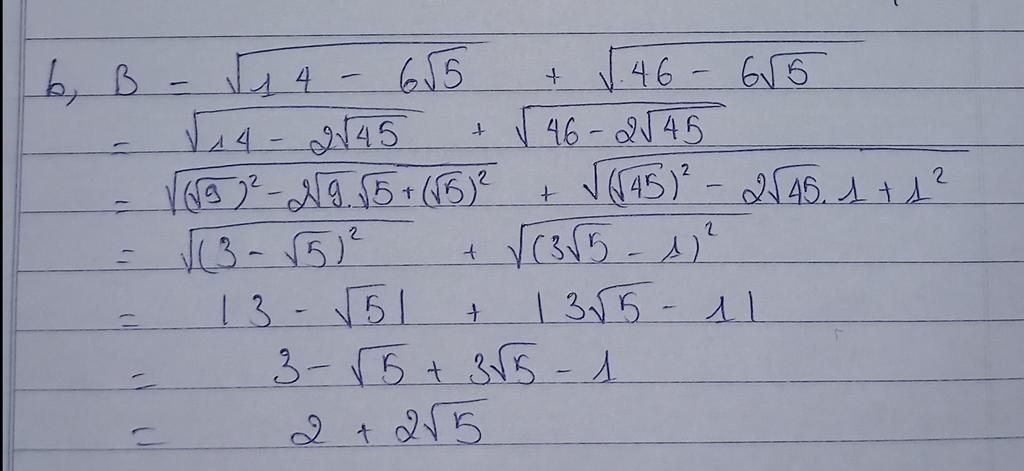 b, B = √(14 - 6√5) + √(46 - 6√5)
= √(14 - 2√45) + √(46 - 2√45)
= √((√9)² - 2√9.√5 + (√5)²) + √((√45)² - 2√45.1 + 1²)
= √((3 - √5)²) + √((3√5 - 1)²)
= |3 - √5| + |3√5 - 1|
= 3 - √5 + 3√5 - 1
= 2 + 2√5